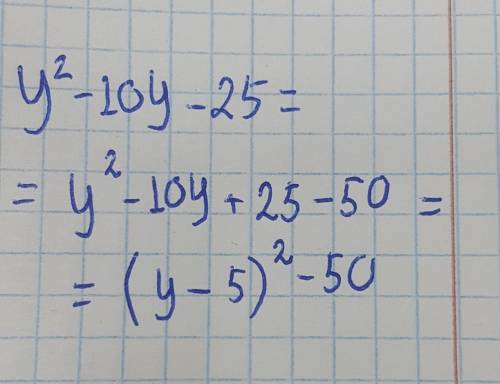 y² - 10y - 25 =
= y² - 10y + 25 - 50 =
= (y - 5)² - 50